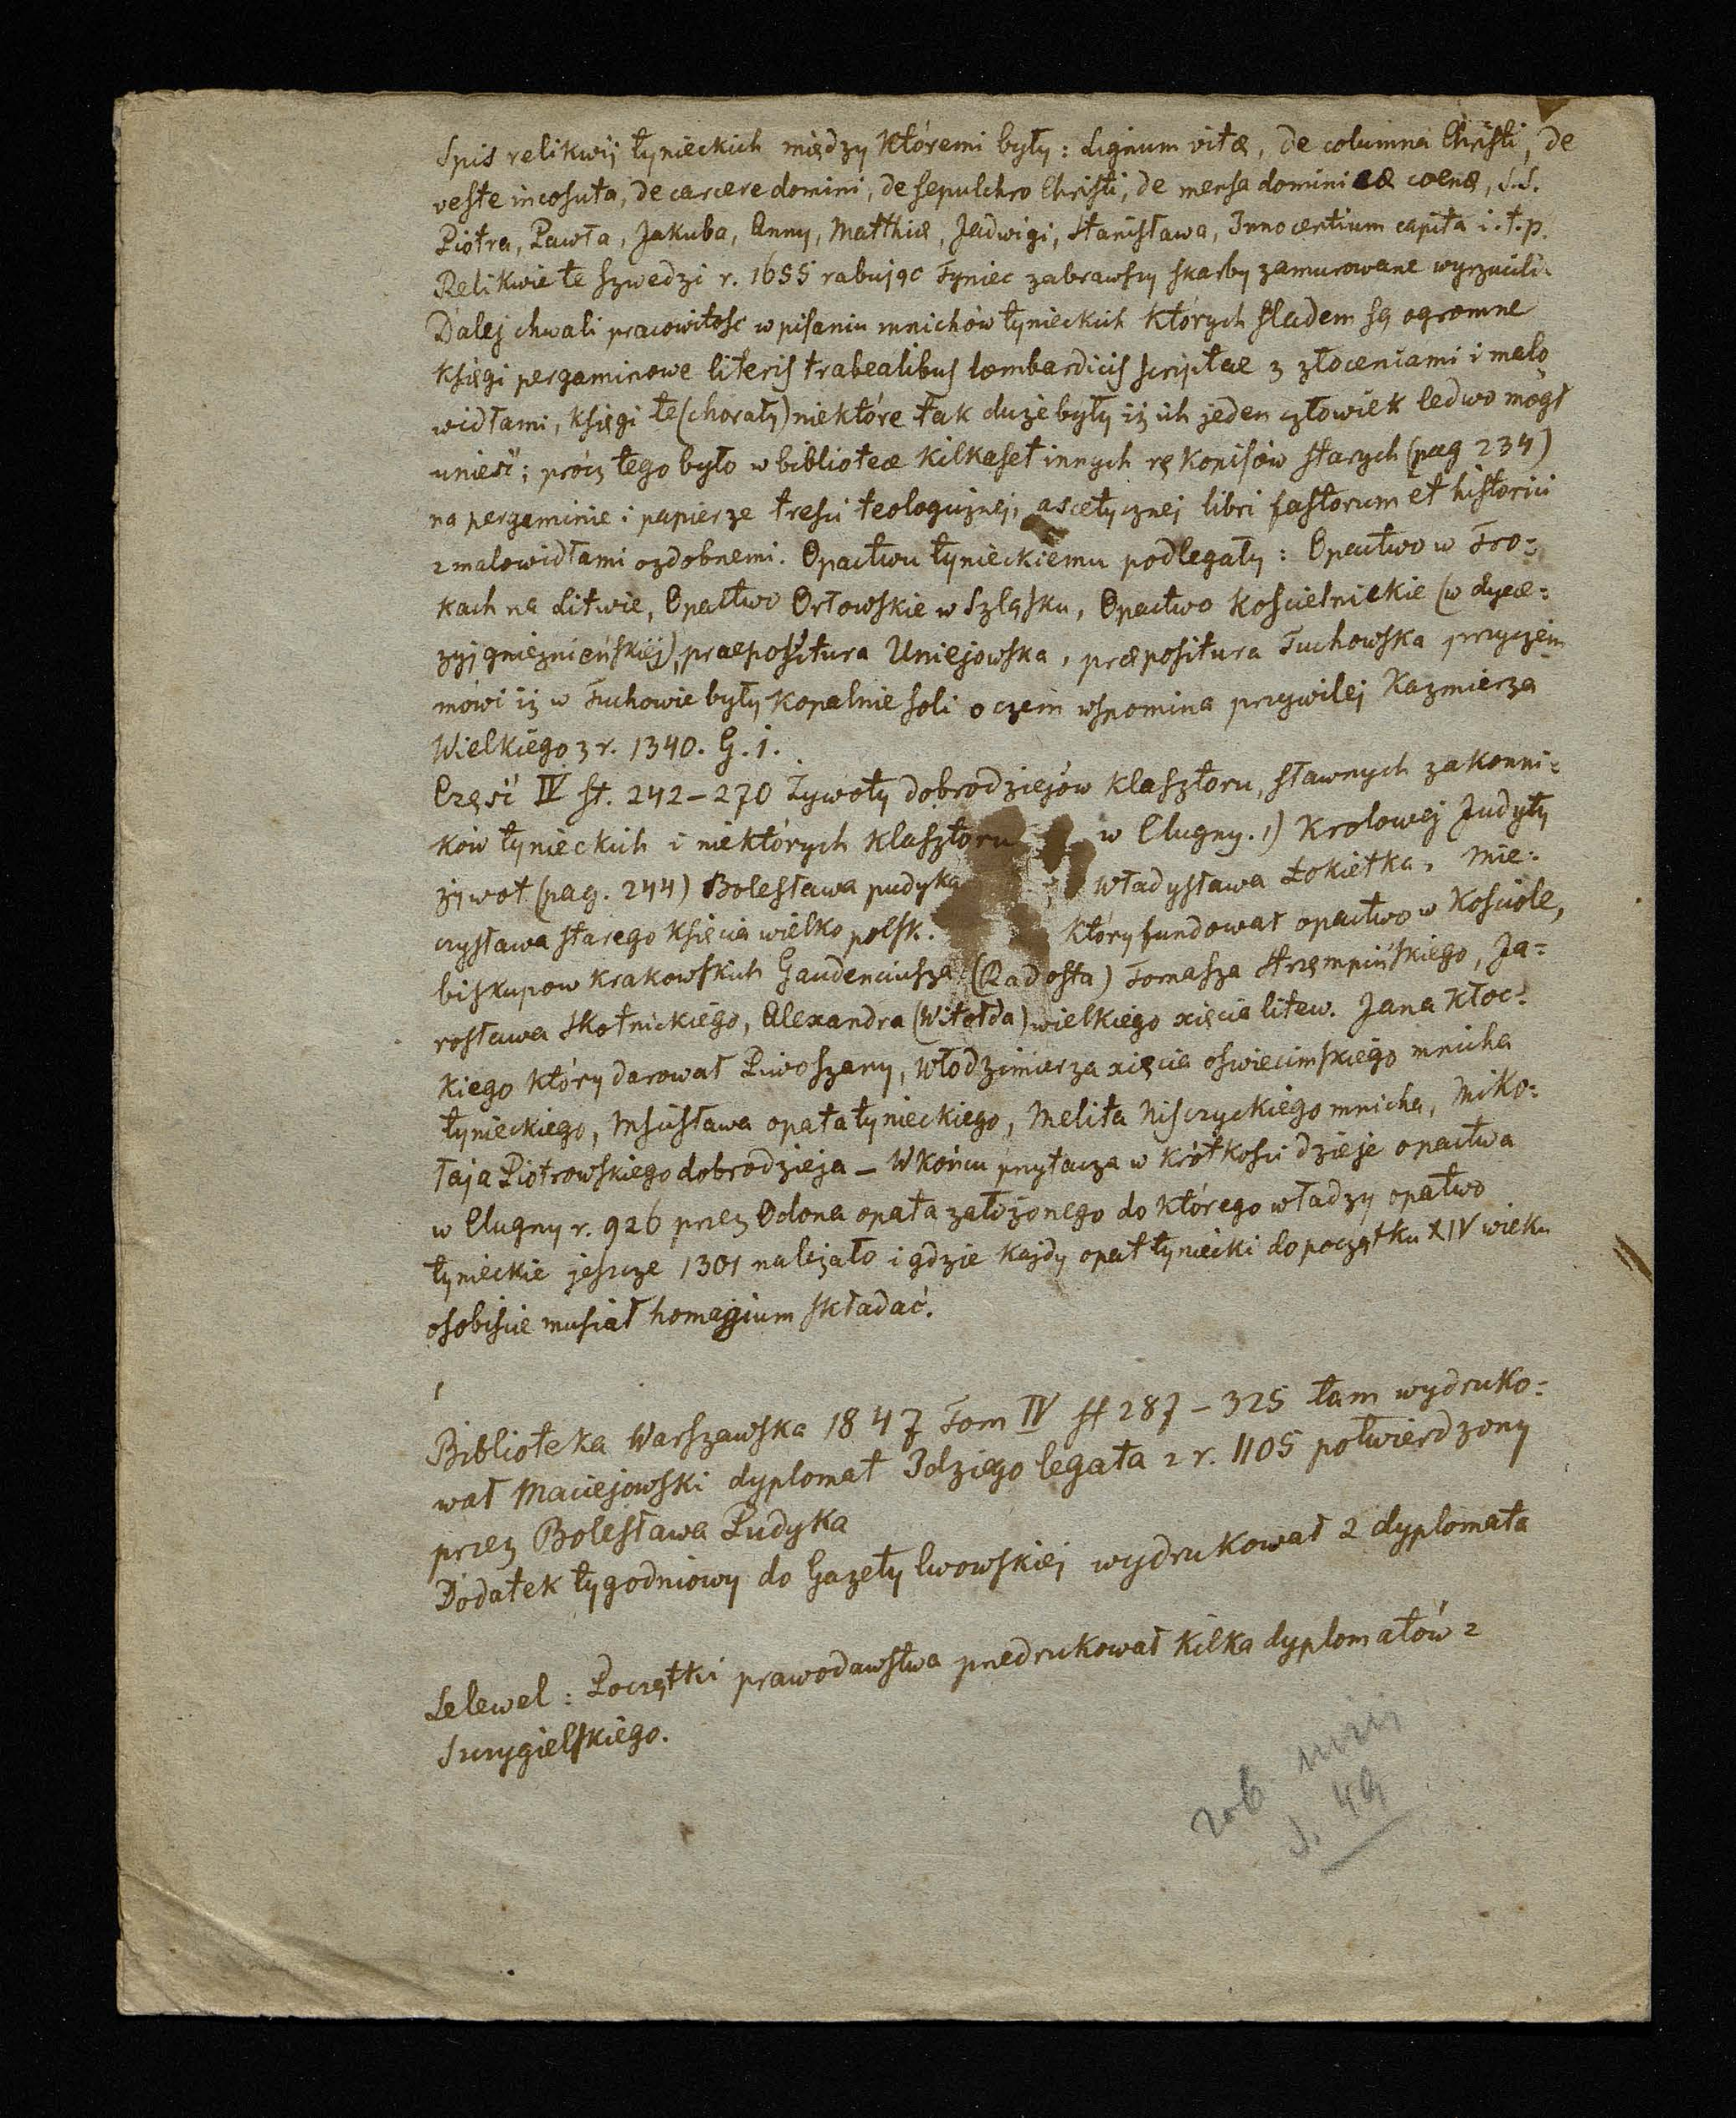 Spis relikwij tynieckich między któremi były: Lignum vitæ, de columna Christi, de
veste incosuta, de carcere domini, de sepulchro Christi, de mensa dominicæ coenæ, S.S.
Piotra, Pawła, Jakuba, Anny, Matthiæ, Jadwigi, Stanisława, Innocentium capita i.t.p.
Relikwie te szwedzi r. 1655 rabując Tyniec zabrawszy skarby zamurowane wyrzucili.
Dalej chwali pracowitość w pisaniu mnichów tynieckich których śladem są ogromne
księgi pergaminowe literis trabealibus lombardicis scriptae z złoceniami i malo
widłami, księgi te (chorały) niektóre tak duże były iż ich jeden człowiek ledwo mógł
unieść; prócz tego było w bibliotece kilkaset innych rękopisów starych (pag 234)
na pergaminie i papierze treści teologicznej, ascetycznej libri fastorum et historici
z malowidłami ozdobnemi. Opactwu tynieckiemu podlegały: Opactwo w Tro=
kach na Litwie, Opactwo Orłowskie w Szląsku, Opactwo Kościelnickie (w dyece=
zyj gnieznieńskiej), praepositura Uniejowska, præpositura Tuchowska przyczem
mówi iż w Tuchowie były kopalnie soli o czem wspomina przywilej Kazmierza
Wielkiego z r. 1340. G. i.
Część IV st. 242–270 Żywoty dobrodziejów klasztoru, sławnych zakonni=
ków tynieckich i niektórych klasztoru w Clugny. 1) Krolowej Judyty
żywot (pag. 244) Bolesława pudyka ; Władysława Łokietka, Mie=
czysława starego księcia wielko polsk. który fundował opactwo w Kościole,
biskupow krakowskich Gaudenciusza (Radosta) Tomasza Strzempińskiego, Ja=
rosława Skotnickiego, Alexandra (Witołda) wielkiego xięcia litew. Jana Kłoc=
kiego który darował Piwoszany, Włodzimierza xięcia oświecimskiego mnicha
tynieckiego, Mscisława opata tynieckiego, Melita Nisczyckiego mnicha, Miko=
łaja Piotrowskiego dobrodzieja – W końcu przytacza w krótkości dzieje opactwa
w Clugny r. 926 przez Odona opata założonego do którego władzy opatwo
tynieckie jeszcze 1301 należało i gdzie każdy opat tyniecki do początku XIV wieku
osobiście musiał homagium składać.
Biblioteka Warszawska 1847 Tom IV st 287–325 tam wydruko=
wał Maciejowski dyplomat Idziego legata z r. 1105 potwierdzony
przez Bolesława Pudyka
Dodatek tygodniowy do Gazety lwowskiej wydrukował 2 dyplomata
Lelewel: Początki prawodawstwa przedrukował kilka dyplomatów z
Szczygielskiego.
zob
s. 49